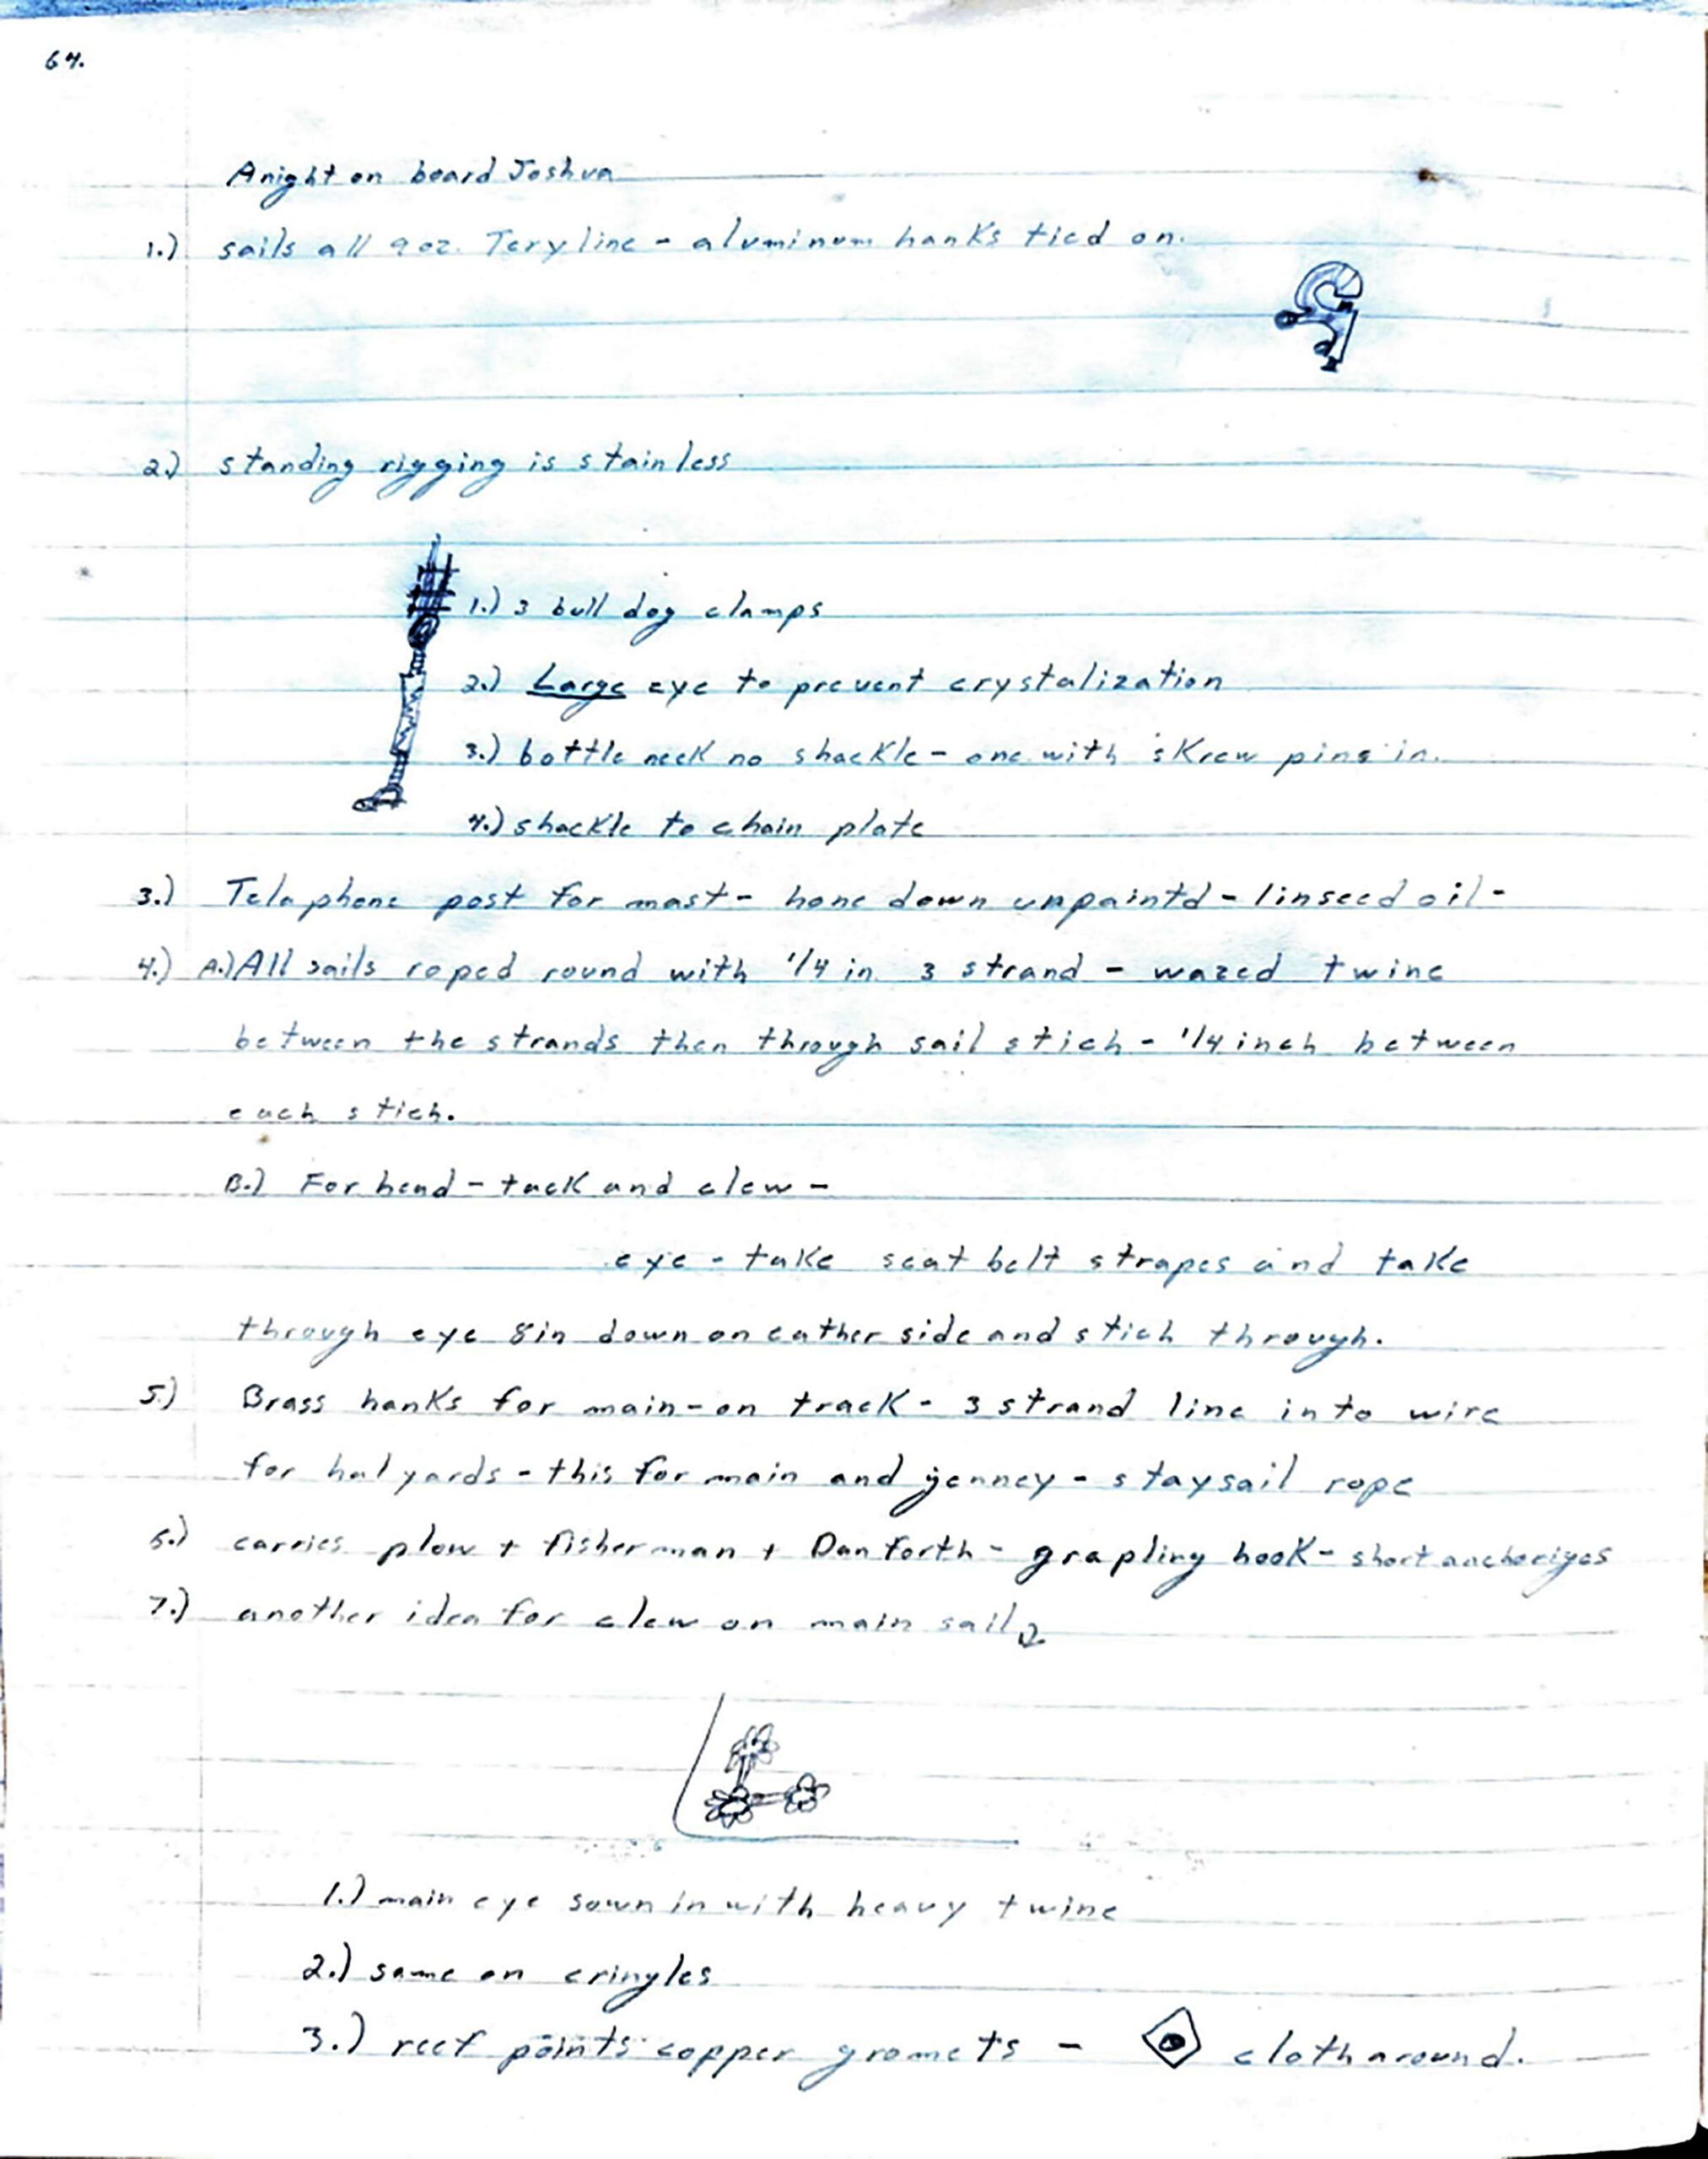 64.
A night on board Joshua
1.) sails all 9 oz. Teryline - aluminum hanks tied on.
2.) standing rigging is stainless
1.) 3 bull dog clamps
2.) Large eye to prevent crystalization
3.) bottle neck no shackle - one with skrew pins in.
4.) shackle to chain plate
3.) Telaphone post for mast - hone down unpaintd - linseed oil -
4.) A.) All sails roped round with 1/4 in. 3 strand - waxed twine
between the strands then through sail stich - 1/4 inch between
each stich.
B.) For head - tack and clew -
eye - take seat belt strapes and take
through eye 8in down on eather side and stich through.
5.) Brass hanks for main - on track - 3 strand line into wire
for halyards - this for main and jenney - staysail rope
6.) carries plow + fisherman + Danforth - grapling hook - short
7.) another idea for clew on main sail
1.) main eye sown in with heavy twine
2.) same on cringles
3.) reef points copper gromets - cloth around.